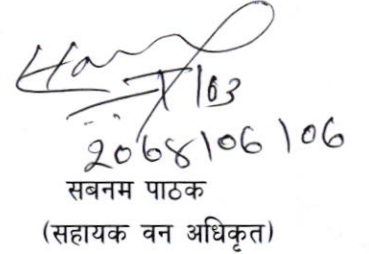 2068/06/06
सबनम पाठक
(सहायक वन अधिकृत)